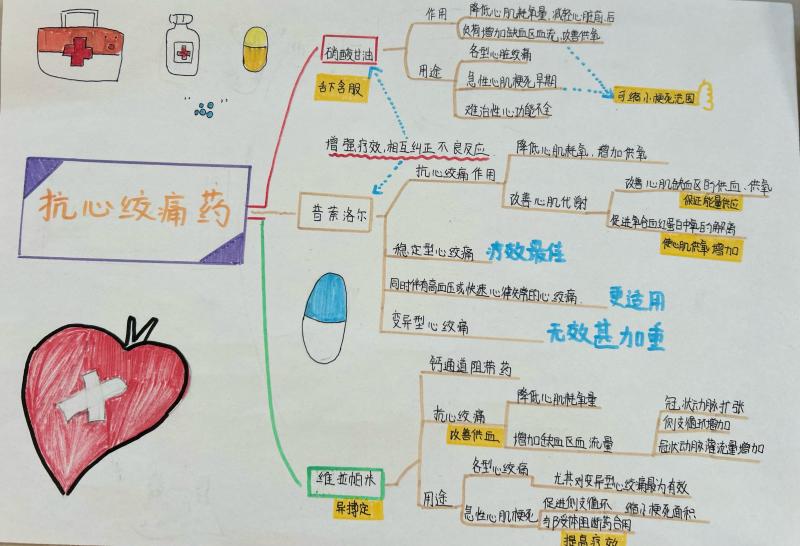 抗心绞痛药
硝酸甘油
舌下含服
作用
降低心肌耗氧量,减轻心脏前后
负荷增加缺血区血流,改善供氧
用途
各型心脏绞痛
急性心肌梗死早期
难治性心功能不全
可缩小梗死范围
增强疗效,相互纠正不良反应
普萘洛尔
抗心绞痛作用
降低心肌耗氧、增加供氧
改善心肌代谢
改善心肌缺血区的供血、供氧
保证能量供应
促进氧合血红蛋白中氧的解离
使心肌供氧增加
稳定型心绞痛 疗效最佳
同时伴有高血压或快速心律失常的心绞痛 更适用
变异型心绞痛 无效甚加重
维拉帕米
异搏定
钙通道阻滞药
抗心绞痛
改善供血
降低心肌耗氧量
增加缺血区血流量
冠状动脉扩张
侧支循环增加
冠状动脉灌流量增加
用途
各型心绞痛
尤其对变异型心绞痛最为有效
急性心肌梗死
促进侧支循环 缩小梗死面积
与β受体阻断药合用
提高疗效